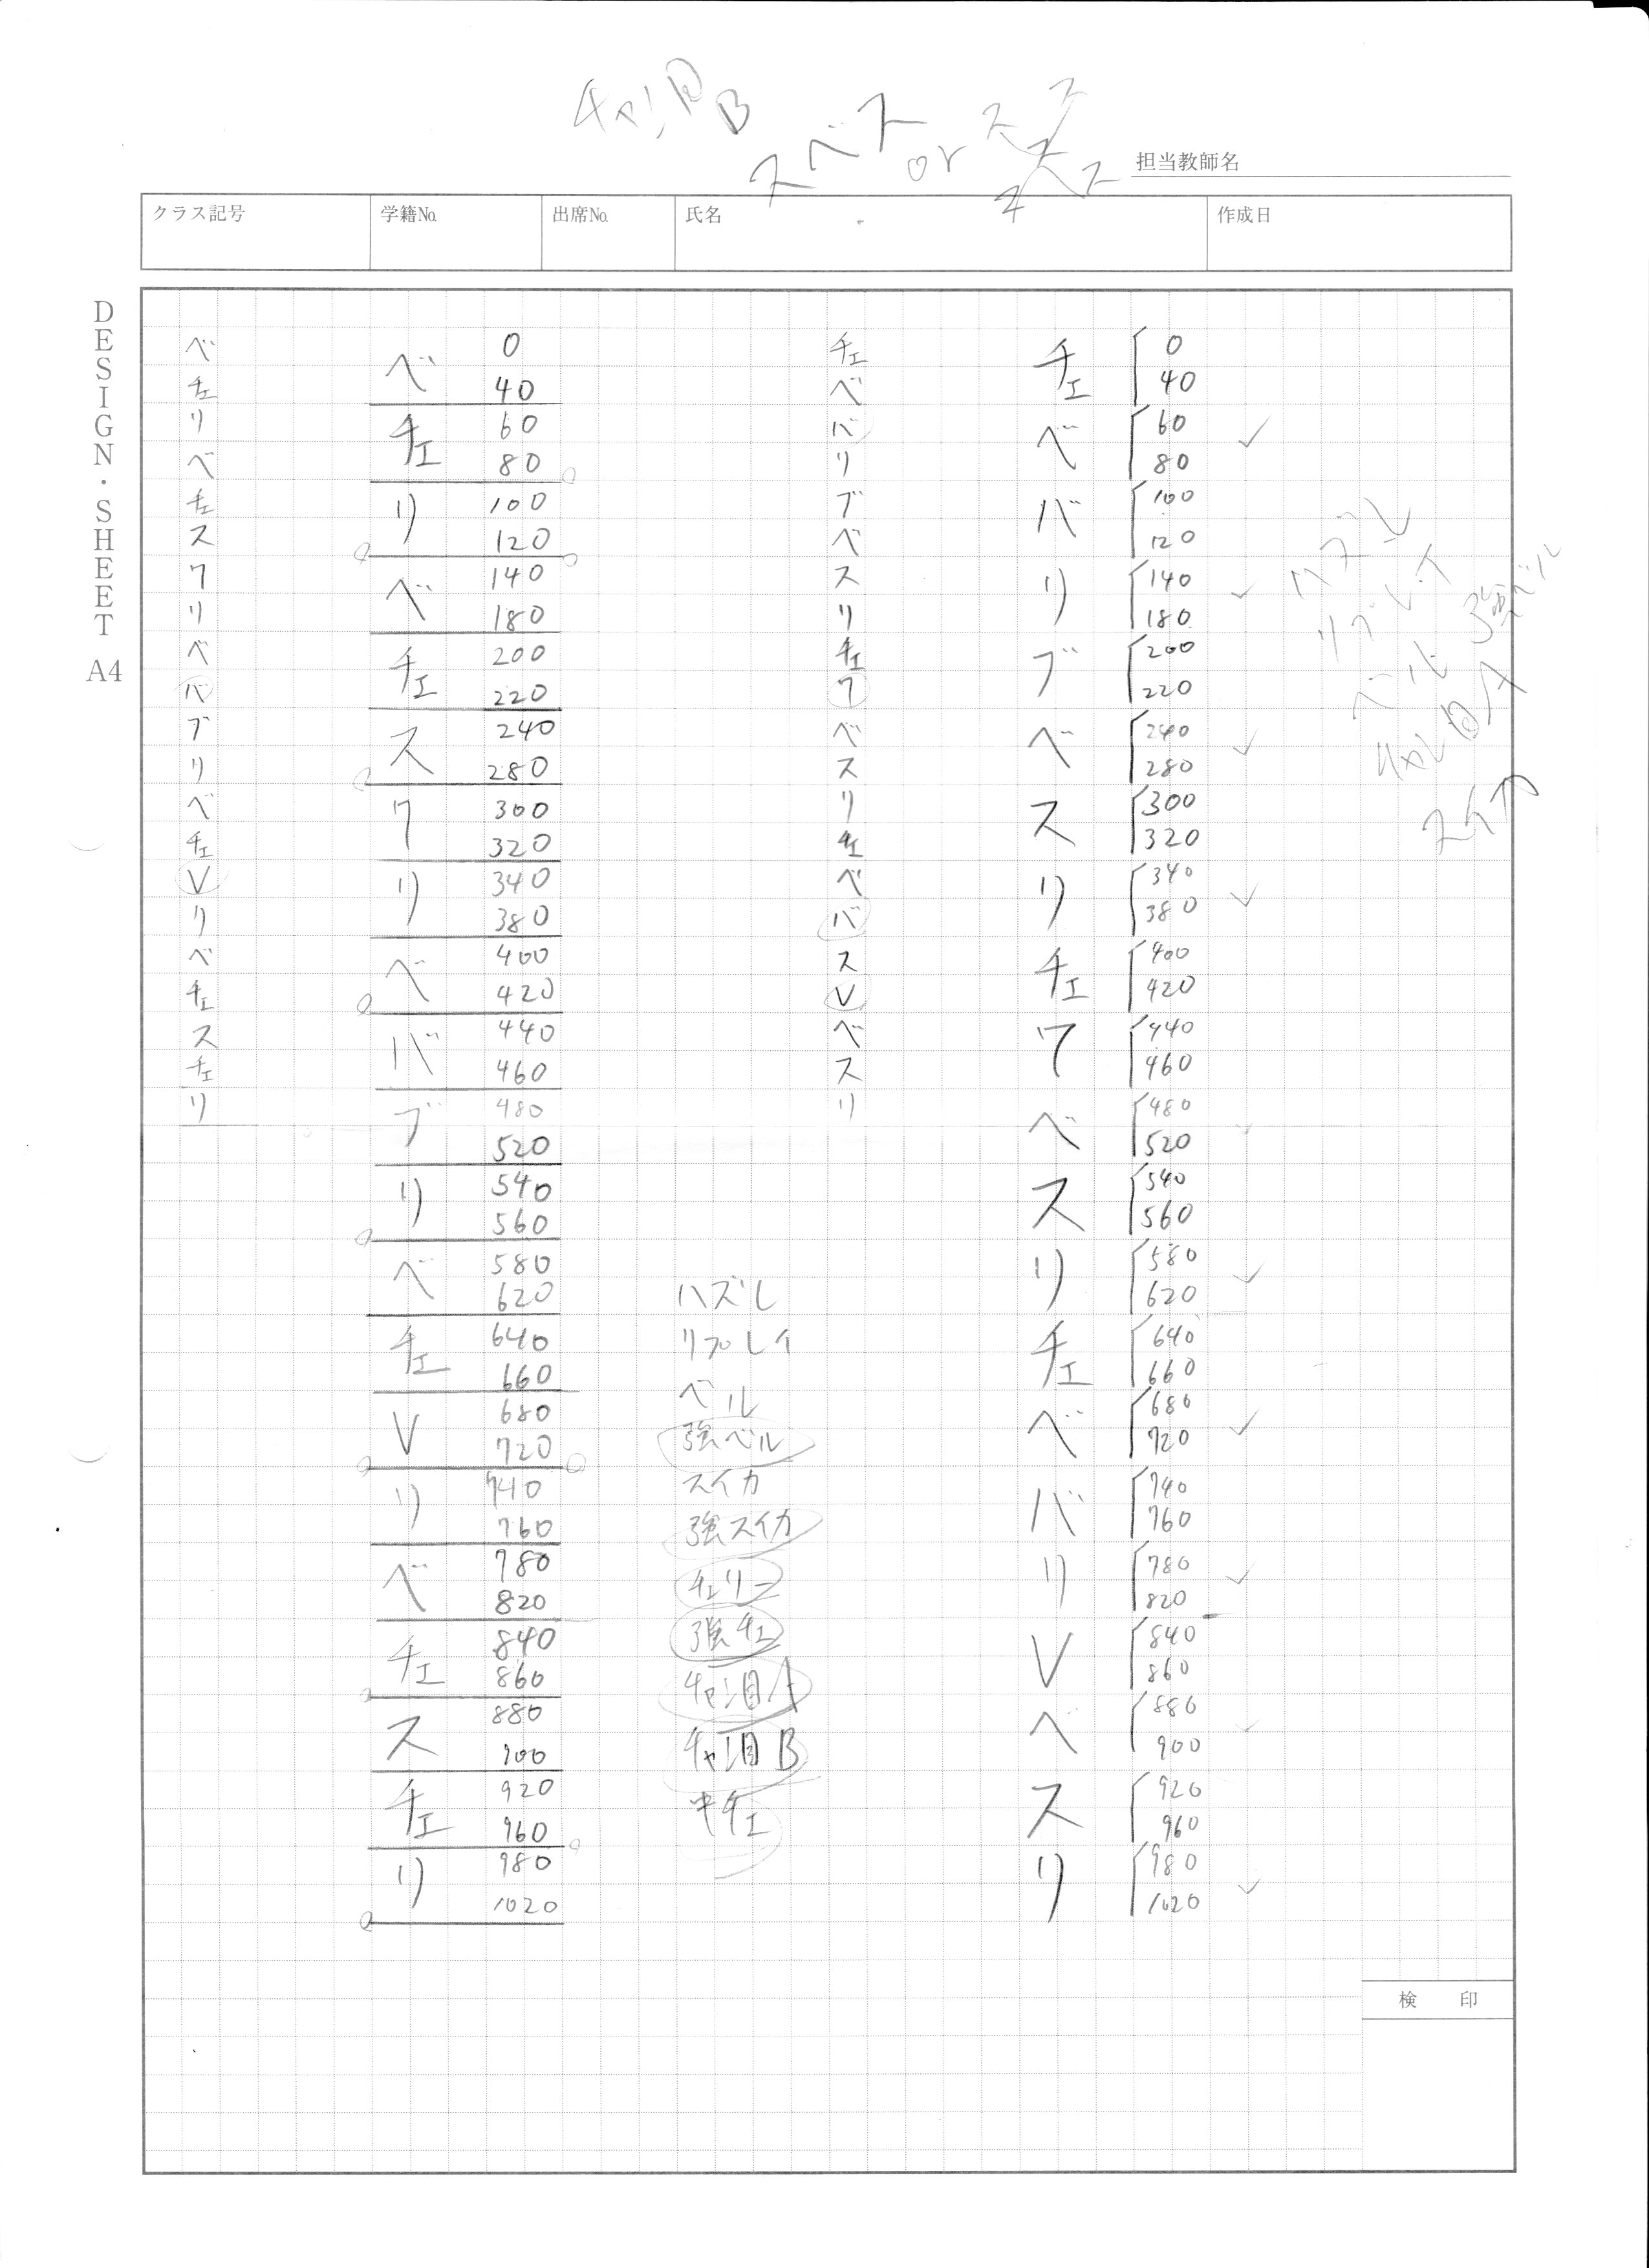 チャン目B
スベス
or
ス
ス
ス
担当教師名
クラス記号
学籍No.
出席No.
氏名
作成日
DESIGN・SHEET A4
ベ
チェ
リ
ベ
チェ
ス
7
リ
ベ
バ
ブ
リ
ベ
チェ
V
リ
ベ
チェ
ス
チェ
リ
ベ 0
40
チェ 60
80
リ 100
120
ベ 140
180
チェ 200
220
ス 240
280
7 300
320
リ 340
380
ベ 400
420
バ 440
460
ブ 480
520
リ 540
560
ベ 580
620
チェ 640
660
V 680
720
リ 740
760
ベ 780
820
チェ 840
860
ス 880
900
チェ 920
960
リ 980
1020
ハズレ
リプレイ
ベル
強ベル
スイカ
強スイカ
チェリー
強チェ
チャン目A
チャン目B
中チェ
チェ
ベ
バ
リ
ブ
ベ
ス
リ
チェ
7
ベ
ス
リ
チェ
ベ
バ
ス
V
ベ
ス
リ
チェ 0
40
ベ 60
80
バ 100
120
リ 140
180
ブ 200
220
ベ 240
280
ス 300
320
リ 340
380
チェ 400
420
7 440
460
ベ 480
520
ス 540
560
リ 580
620
チェ 640
660
ベ 680
720
バ 740
760
リ 780
820
V 840
860
ベ 880
900
ス 920
960
リ 980
1020
ハズレ
リプレイ
ベル
強ベル
チャン目A
スイカ
検印